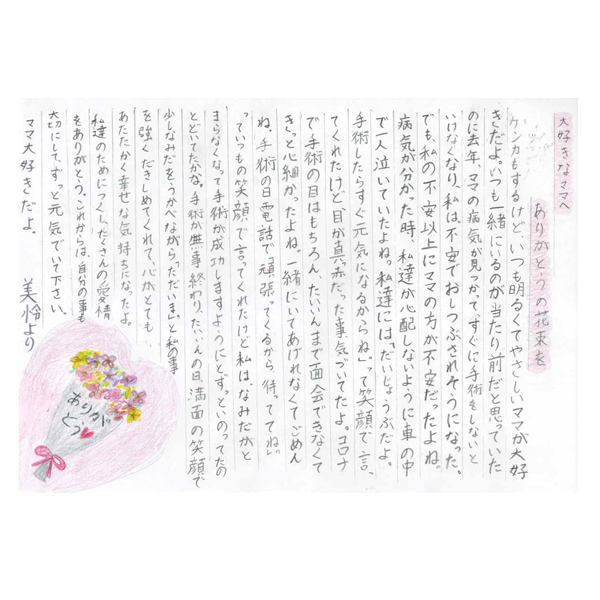 大好きなママへ
ありがとうの花束を
ケンカもするけど、いつも明るくてやさしいママが大好
きだよ。いつも一緒にいるのが当たり前だと思っていた
のに去年、ママの病気が見つかって、すぐに手術をしないと
いけなくなり、私は、不安でおしつぶされそうになった。
でも、私の不安以上にママの方が不安だったよね。
病気が分かった時、私達が心配しないように車の中
で一人泣いていたよね。私達には「だいじょうぶだよ。
手術したらすぐ元気になるからね」って笑顔で言っ
てくれたけど目が真っ赤だった事気づいてたよ。コロナ
で手術の日はもちろん、たいいんまで面会できなくて
きっと心細かったよね。一緒にいてあげれなくてごめん
ね。手術の日電話で「頑張ってくるから、待っててね。」
っていつもの笑顔で言ってくれたけど私は、なみだがと
まらなくなって手術が成功しますようにとずっといのってたの
とどいてたかな。手術が無事終わり、たいいんの日、満面の笑顔で
少しなみだをうかべながら「ただいま」と私の事
を強くだきしめてくれて、心がとても
あたたかく幸せな気持ちになったよ。
私達のためにつくしたくさんの愛情
をありがとう。これからは、自分の事も
大切にして、ずっと元気でいて下さい。
ママ大好きだよ。
美怜より
ありが
とう